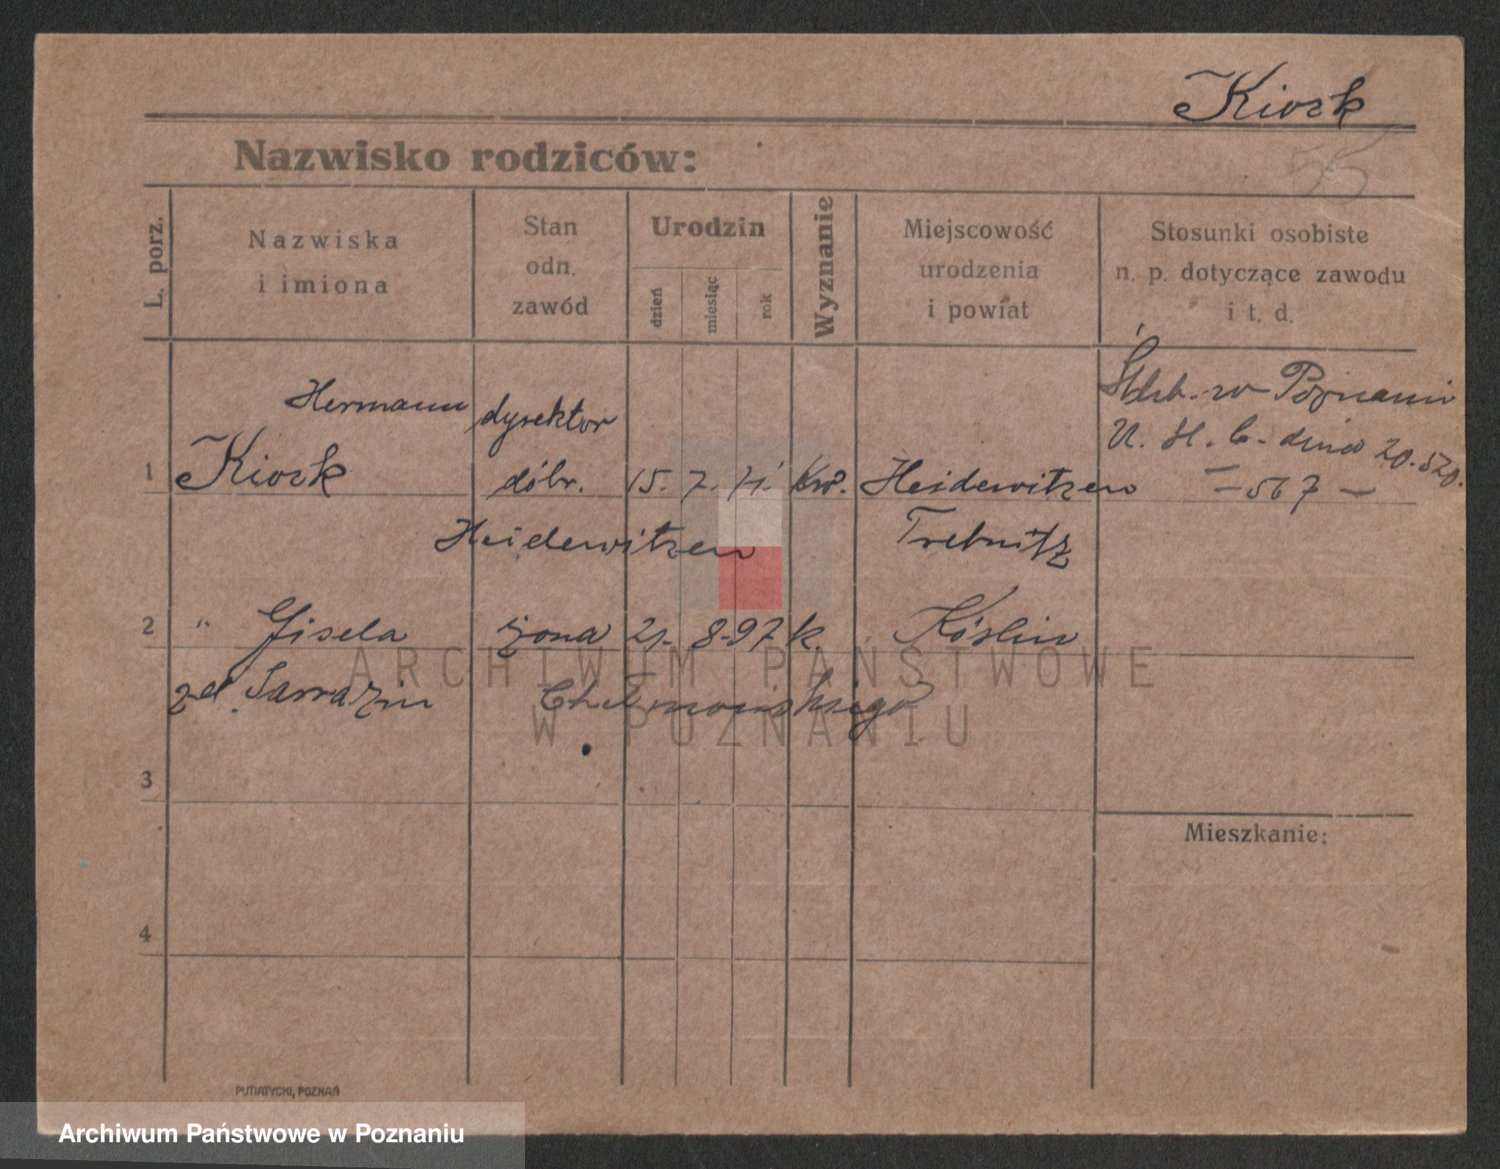 Kiosk
55
Nazwisko rodziców:
L. porz.
Nazwiska
i imiona
Stan
odn.
zawód
Urodzin
dzień
miesiąc
rok
Wyznanie
Miejscowość
urodzenia
i powiat
Stosunki osobiste
n. p. dotyczące zawodu
i t. d.
Ślub w Poznaniu
Hermann dyrektor
U. St. C. dnia 20.
1 Kiosk dóbr. 15. 7. Heidewitzen
— 567 —
Heidewitzen Trebnitz
2 " Gisela żona 21. 8. 97 k. Köslin
zd. Sarrazin
3
Mieszkanie:
4
PUTIATYCKI, POZNAŃ
ARCHIWUM PAŃSTWOWE
W POZNANIU
Archiwum Państwowe w Poznaniu